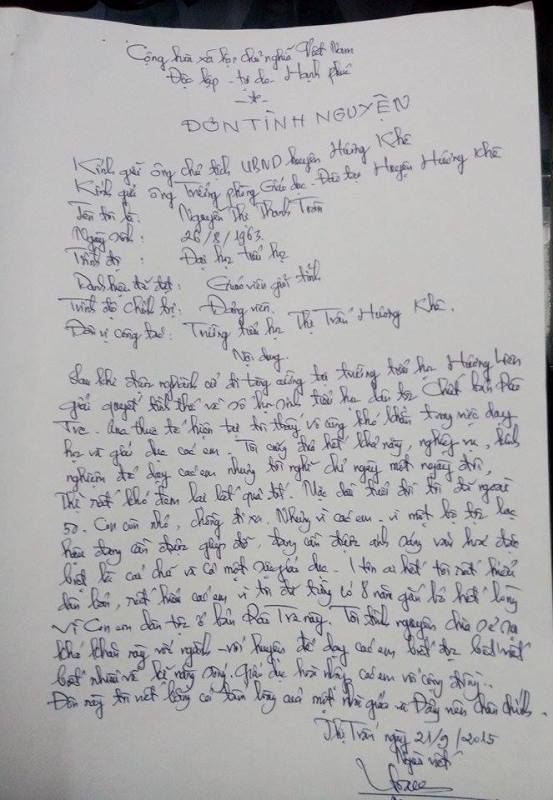 Cộng hòa xã hội chủ nghĩa Việt Nam
Độc lập - tự do - Hạnh phúc
ĐƠN TÌNH NGUYỆN
Kính gửi ông chủ tịch UBND huyện Hương Khê
Kính gửi ông Trưởng phòng Giáo dục - Đào tạo Huyện Hương Khê
Tên tôi là: Nguyễn Thị Thanh Trần
Ngày sinh: 26/8/1963.
Trình độ: Đại học tiểu học
Danh hiệu đã đạt: Giáo viên giỏi tỉnh
Trình độ chính trị: Đảng viên.
Đơn vị công tác: Trường tiểu học Thị Trấn Hương Khê.
Nội dung.
Sau khi được nghành cử đi tăng cường tại trường tiểu học Hương Liên
giải quyết tình thế về số học sinh tiểu học dân tộc Chứt bản Rào
Tre. Qua thực tế hiện tại tôi thấy vô cùng khó khăn trong việc dạy
học và giáo dục các em. Tôi cũng đã hết khả năng, nghiệp vụ, kinh
nghiệm để dạy các em nhưng tôi nghĩ chỉ ngày một ngày đôi,
thì rất khó đem lại kết quả tốt. Mặc dầu tuổi đời tôi đã ngoài
50. Con còn nhỏ, chồng đi xa. Nhưng vì các em - vì một bộ tộc lạc
hậu đang cần được giúp đỡ, đang cần được ánh sáng văn hóa đặc
biệt là cái chữ và có một sự giáo dục. Hơn ai hết tôi rất hiểu
dân bản, rất hiểu các em vì tôi đã từng có 8 năm gắn bó hết lòng
vì con em dân tộc ở bản Rào Tre này. Tôi tình nguyện chia sẻ sự
khó khăn này với ngành - với huyện để dạy các em biết đọc biết viết
biết nhiều về kĩ năng sống. Giáo dục hòa nhập các em với cộng đồng...
Đơn này tôi viết bằng cả tấm lòng của một nhà giáo và Đảng viên chân chính.
Thị Trấn ngày 21/9/2015
Người viết